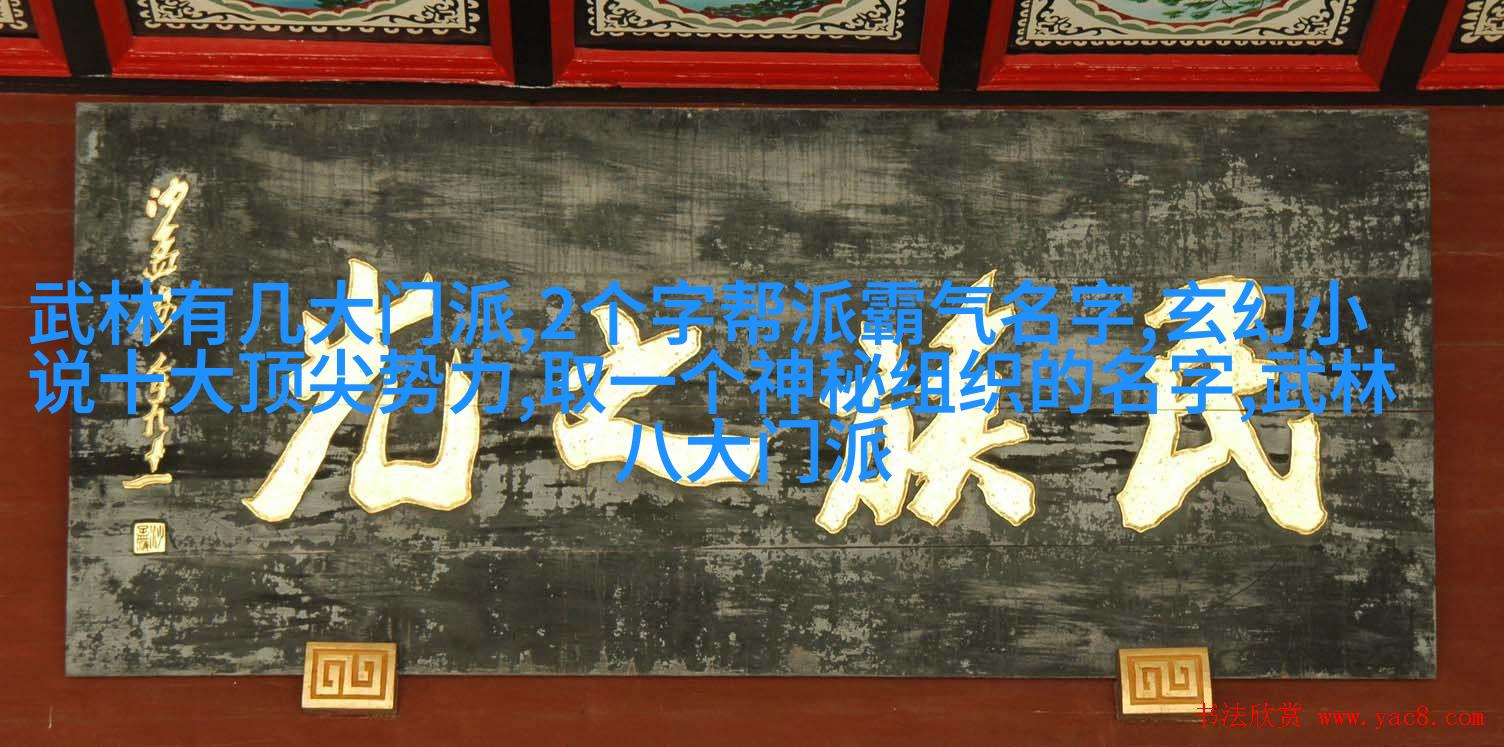 武林有几大门派,2个字帮派霸气名字,玄幻小
说十大顶尖势力,取一个神秘组织的名字,武林
八大门派
民族之光
沙孟海
书法欣赏 www.yac8.com